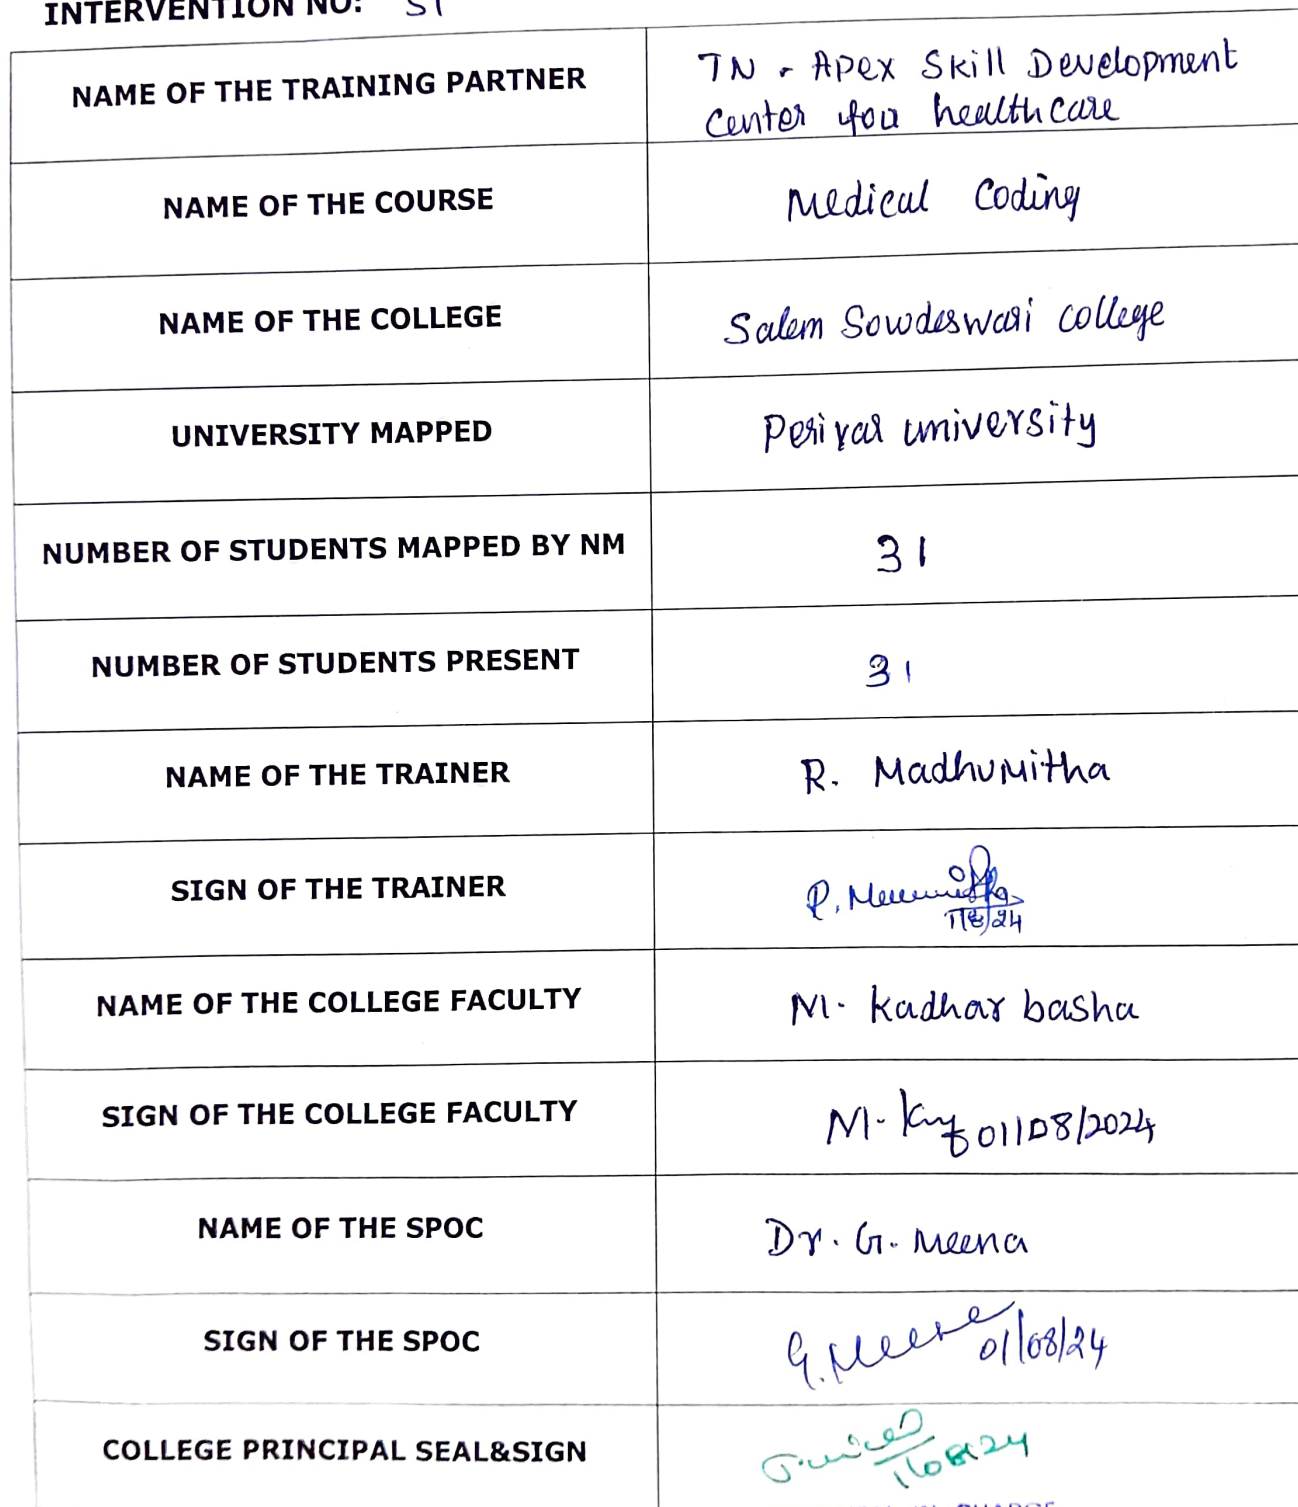 INTERVENTION NO: S1
NAME OF THE TRAINING PARTNER
TN - Apex Skill Development
Center for healthcare
NAME OF THE COURSE
Medical Coding
NAME OF THE COLLEGE
Salem Sowdeswari college
UNIVERSITY MAPPED
Periyar university
NUMBER OF STUDENTS MAPPED BY NM
31
NUMBER OF STUDENTS PRESENT
31
NAME OF THE TRAINER
R. Madhumitha
SIGN OF THE TRAINER
1/8/24
NAME OF THE COLLEGE FACULTY
M. Kadhar basha
SIGN OF THE COLLEGE FACULTY
01/08/2024
NAME OF THE SPOC
Dr. G. Meena
SIGN OF THE SPOC
G. Meena 01/08/24
COLLEGE PRINCIPAL SEAL&SIGN
1/08/24